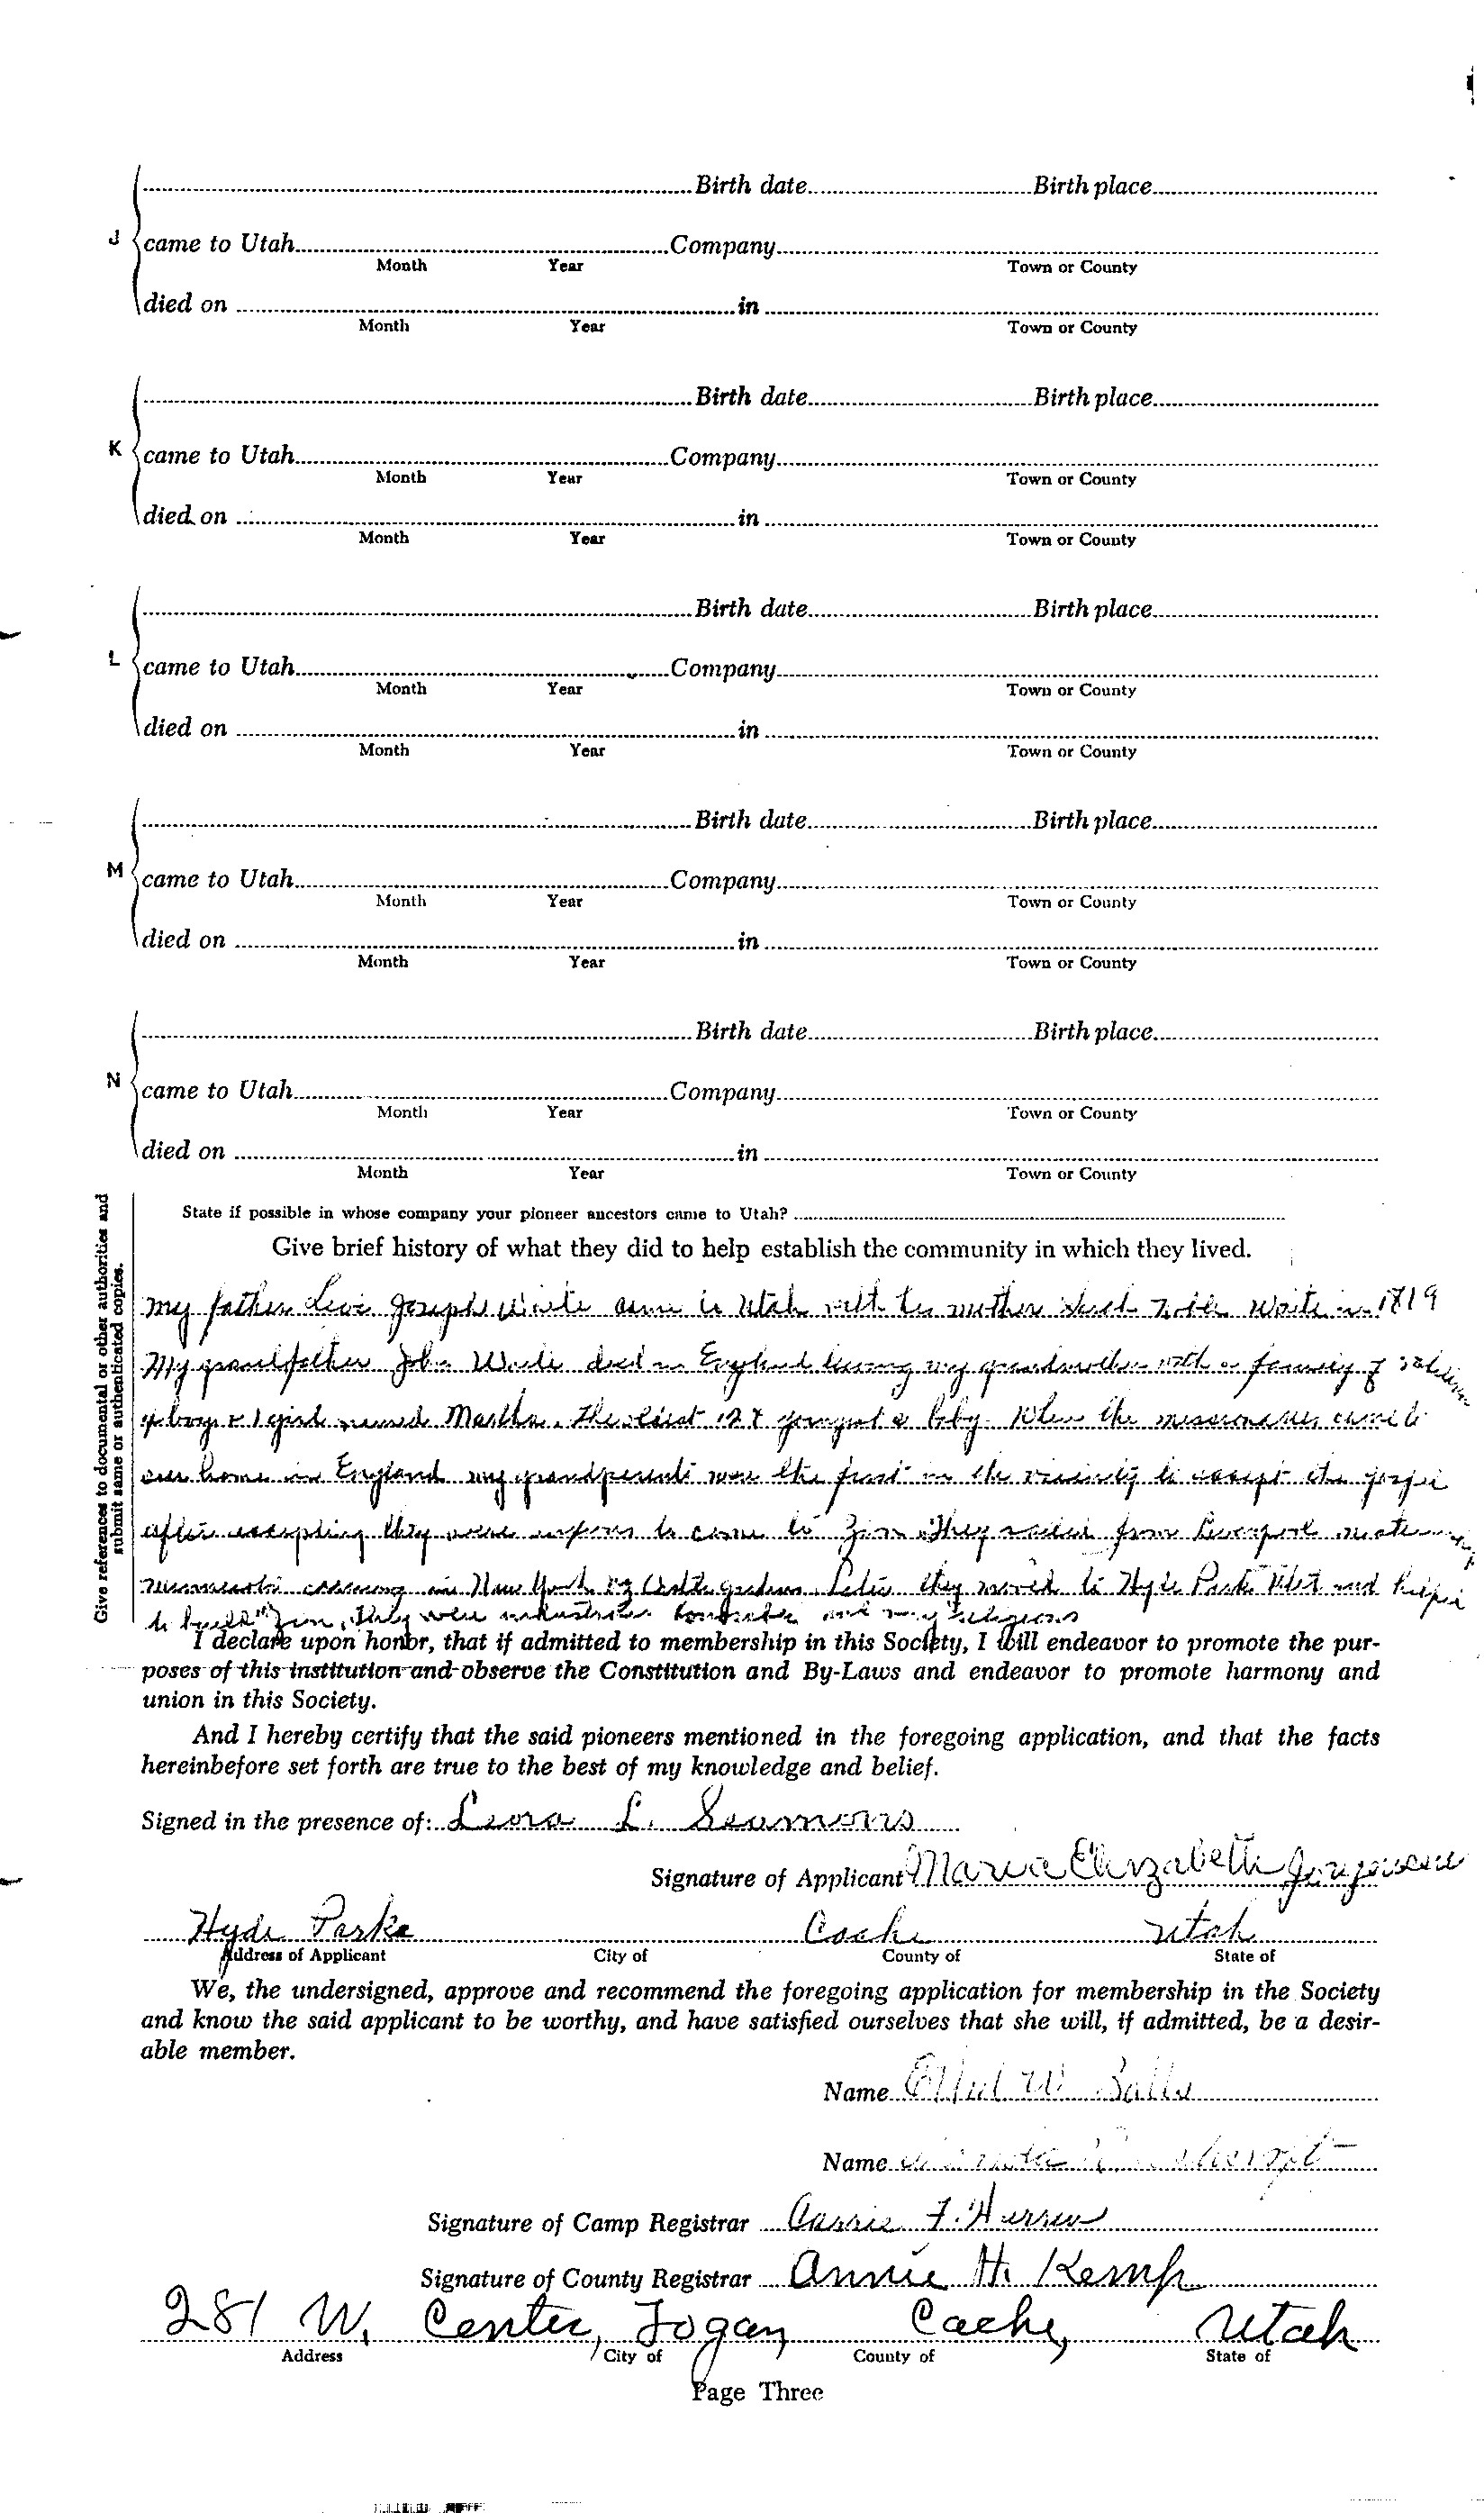 Birth date Birth place
J came to Utah Company
Month Year Town or County
died on in
Month Year Town or County
Birth date Birth place
K came to Utah Company
Month Year Town or County
died on in
Month Year Town or County
Birth date Birth place
L came to Utah Company
Month Year Town or County
died on in
Month Year Town or County
Birth date Birth place
M came to Utah Company
Month Year Town or County
died on in
Month Year Town or County
Birth date Birth place
N came to Utah Company
Month Year Town or County
died on in
Month Year Town or County
Give references to documental or other authorities and
submit same or authenticated copies.
State if possible in whose company your pioneer ancestors came to Utah?
Give brief history of what they did to help establish the community in which they lived.
My father Levi Joseph came to Utah with his mother in 1819
My grandfather John died in England leaving my grandmother with a family of
boys & 1 girl named Martha. The 12 & youngest a baby. When the missionaries came to
our home in England my grandparents were the first in the vicinity to accept the gospel
after accepting they were to come to Zion. They sailed from Liverpool
in New York Later they moved to Hyde Park and
to build Zion, They were and very religious
I declare upon honor, that if admitted to membership in this Society, I will endeavor to promote the pur-
poses of this institution and observe the Constitution and By-Laws and endeavor to promote harmony and
union in this Society.
And I hereby certify that the said pioneers mentioned in the foregoing application, and that the facts
hereinbefore set forth are true to the best of my knowledge and belief.
Signed in the presence of: Leora L. Seamons
Signature of Applicant Maria Elizabeth Jorgensen
Hyde Park Cache Utah
Address of Applicant City of County of State of
We, the undersigned, approve and recommend the foregoing application for membership in the Society
and know the said applicant to be worthy, and have satisfied ourselves that she will, if admitted, be a desir-
able member.
Name Ethel W Balls
Name
Signature of Camp Registrar Carrie F.
Signature of County Registrar Annie H. Kemp
281 W. Center, Logan Cache, Utah
Address City of County of State of
Page Three